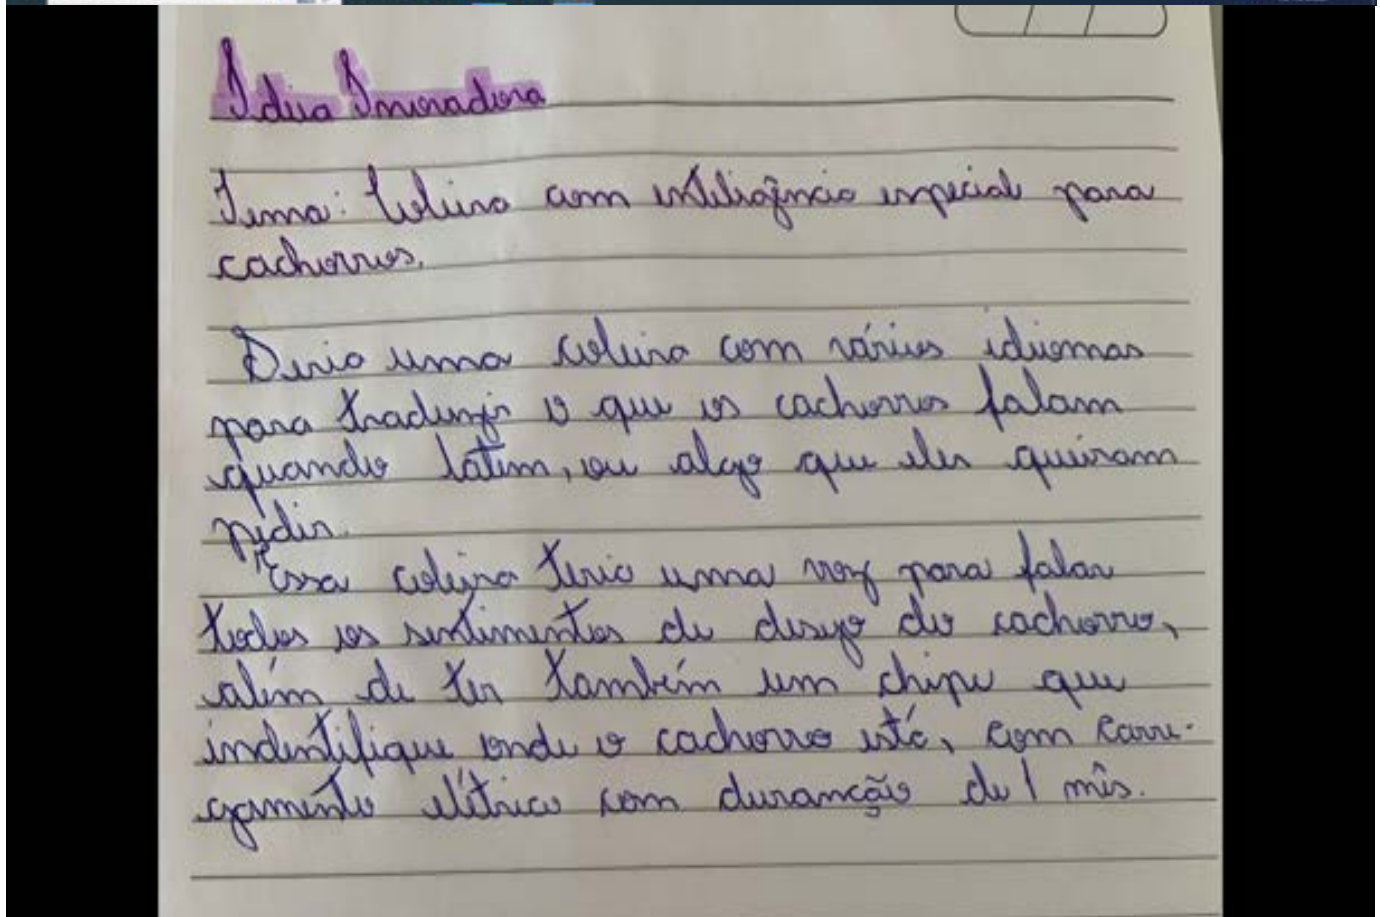 Ideia Inovadora
Tema: Coleira com inteligência especial para
cachorros.
Seria uma coleira com vários idiomas
para traduzir o que os cachorros falam
quando latem, ou algo que eles queiram
pedir.
Essa coleira teria uma voz para falar
todos os sentimentos de desejo do cachorro,
além de ter também um chipe que
indentifique onde o cachorro está, com carre-
gamento elétrico com duranção de 1 mês.